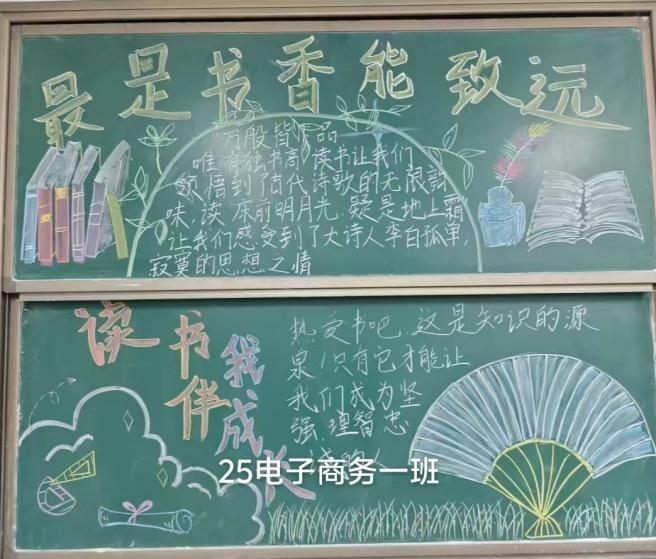 最是书香能致远
万般皆下品
唯有独书高"读书让我们
领悟到了古代诗歌的无限韵
味,读"床前明月光,疑是地上霜"
让我们感受到了大诗人李白孤单,
寂寞的思想之情
读书伴我成长
热爱书吧,这是知识的源
泉!只有它才能让
我们成为坚
强,理智忠
25电子商务一班